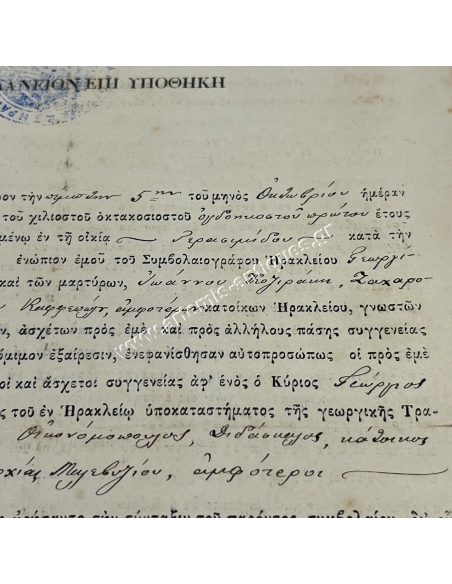 ΔΑΝΕΙΟΝ ΕΠΙ ΥΠΟΘΗΚΗ
ρον τὴν πέμπτην 5ην τοῦ μηνὸς Ὀκτωβρίου ἡμέραν
τοῦ χιλιοστοῦ ὀκτακοσιοστοῦ ὀγδοηκοστοῦ πρώτου ἔτους
μένῳ ἐν τῇ οἰκίᾳ Γερασιμίδου κατὰ τὴν
ἐνώπιον ἐμοῦ τοῦ Συμβολαιογράφου Ἡρακλείου Γεωργί
καὶ τῶν μαρτύρων, Ἰωάννου Ζαχαρο
ἀμφοτέρων κατοίκων Ἡρακλείου, γνωστῶν
ν, ἀσχέτων πρὸς ἐμὲ καὶ πρὸς ἀλλήλους πάσης συγγενείας
όμιμον ἐξαίρεσιν, ἐνεφανίσθησαν αὐτοπροσώπως οἱ πρὸς ἐμὲ
οὶ καὶ ἄσχετοι συγγενείας ἀφ' ἑνὸς ὁ Κύριος Γεώργιος
ς τοῦ ἐν Ἡρακλείῳ ὑποκαταστήματος τῆς γεωργικῆς Τρα-
Οἰκονόμοπουλος, Διδάσκαλος, κάτοικος
ρχίας Μαλεβυζίου, ἀμφότεροι
τὴν σύνταξιν τοῦ παρόντος συμβολαίου